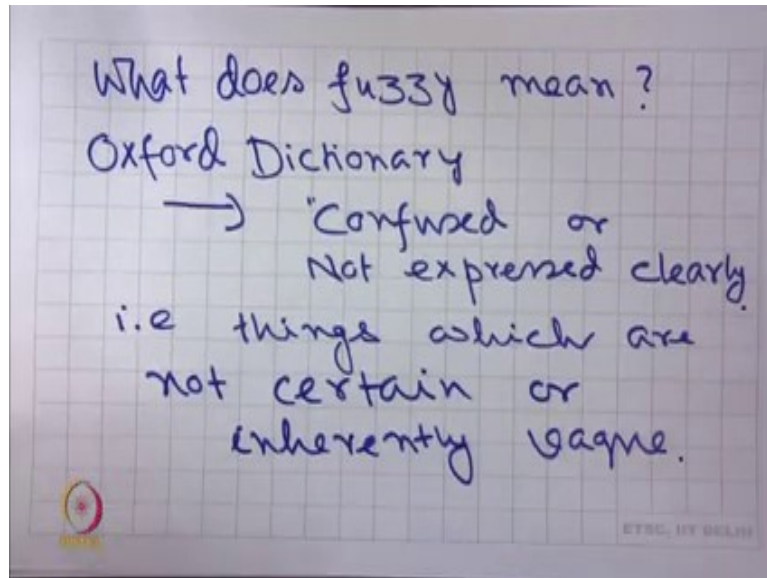 What does fuzzy mean?
Oxford Dictionary
→ "Confused or
Not expressed clearly.
i.e things which are
not certain or
inherently vague.
ETSC, IIT DELHI